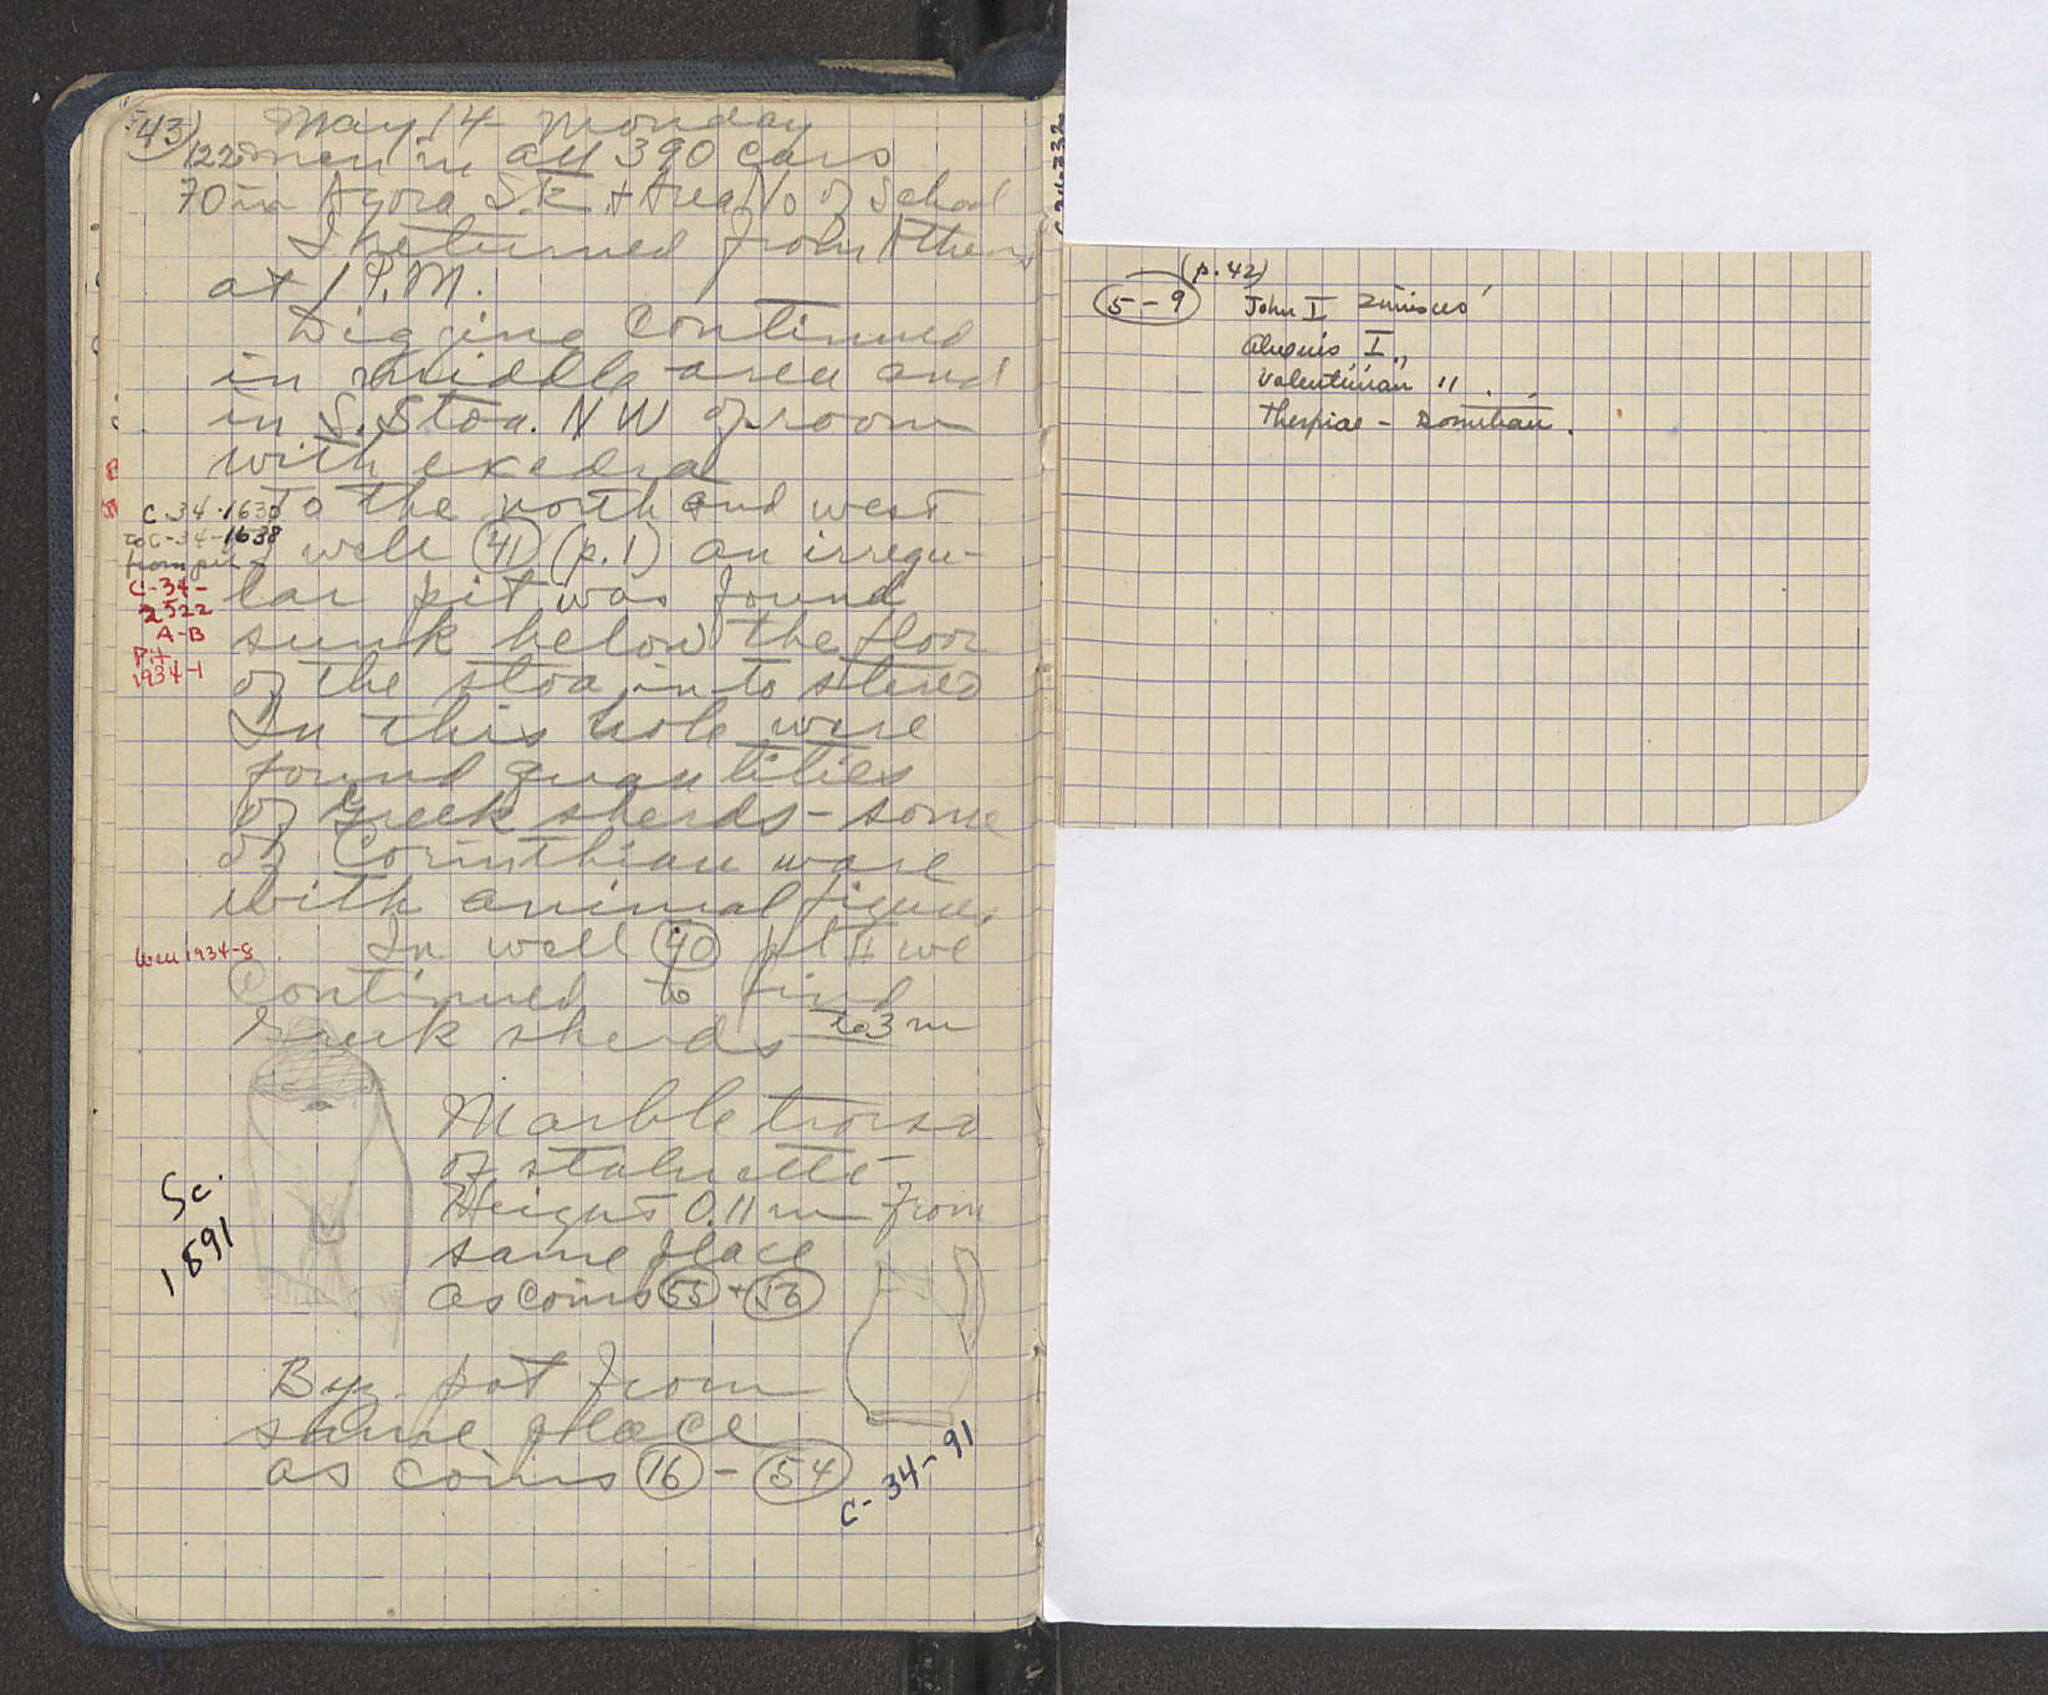 43)
May 14 Monday
122 men in all 390 cars
70 in Agora S.E + Area No of School
I returned from Athens
at 1 P.M.
Digging continued
in middle area and
in S. Stoa. NW of room
with exedra
To the north and west
of well (41) (p. 1) an irregu-
lar pit was found
sunk below the floor
of the stoa into stereo
In this hole were
found quantities
of Greek sherds - some
of Corinthian ware
with animal figures
In well (40) pt II we
continued to find
Greek sherds to 3 m
C-34-1630
to C-34-1638
from pit
C-34-
2522
A-B
Pit
1934-1
Well 1934-8
Marble torso
of statuette
Height 0.11 m from
same place
as coins (55) + (56)
Sc.
1891
Byz. pot from
same place
as coins (16) - (54)
C-34-91
(p. 42)
(5-9) John I Zimisces
Alexius I
Valentinian II
Thespiae - Domitian.